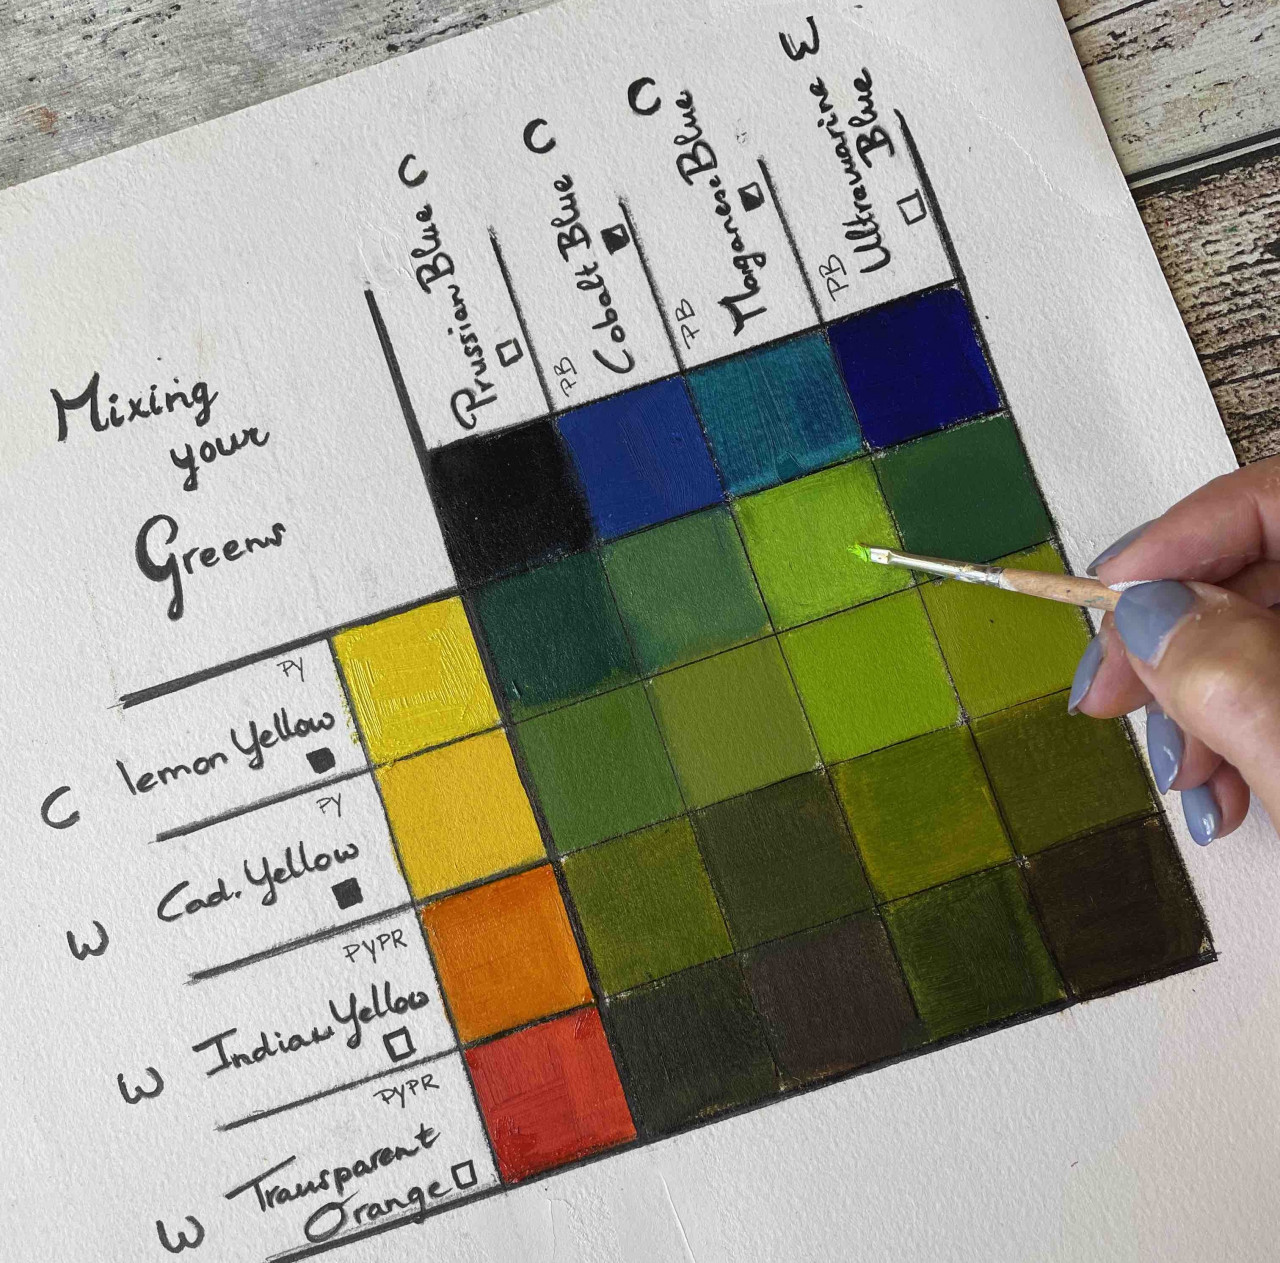 Mixing
your
Greens
Prussian Blue C
PB
Cobalt Blue C
PB
Manganese Blue C
PB
Ultramarine W
Blue
PY
C lemon Yellow
PY
W Cad. Yellow
PYPR
W Indian Yellow
PYPR
W Transparent
Orange